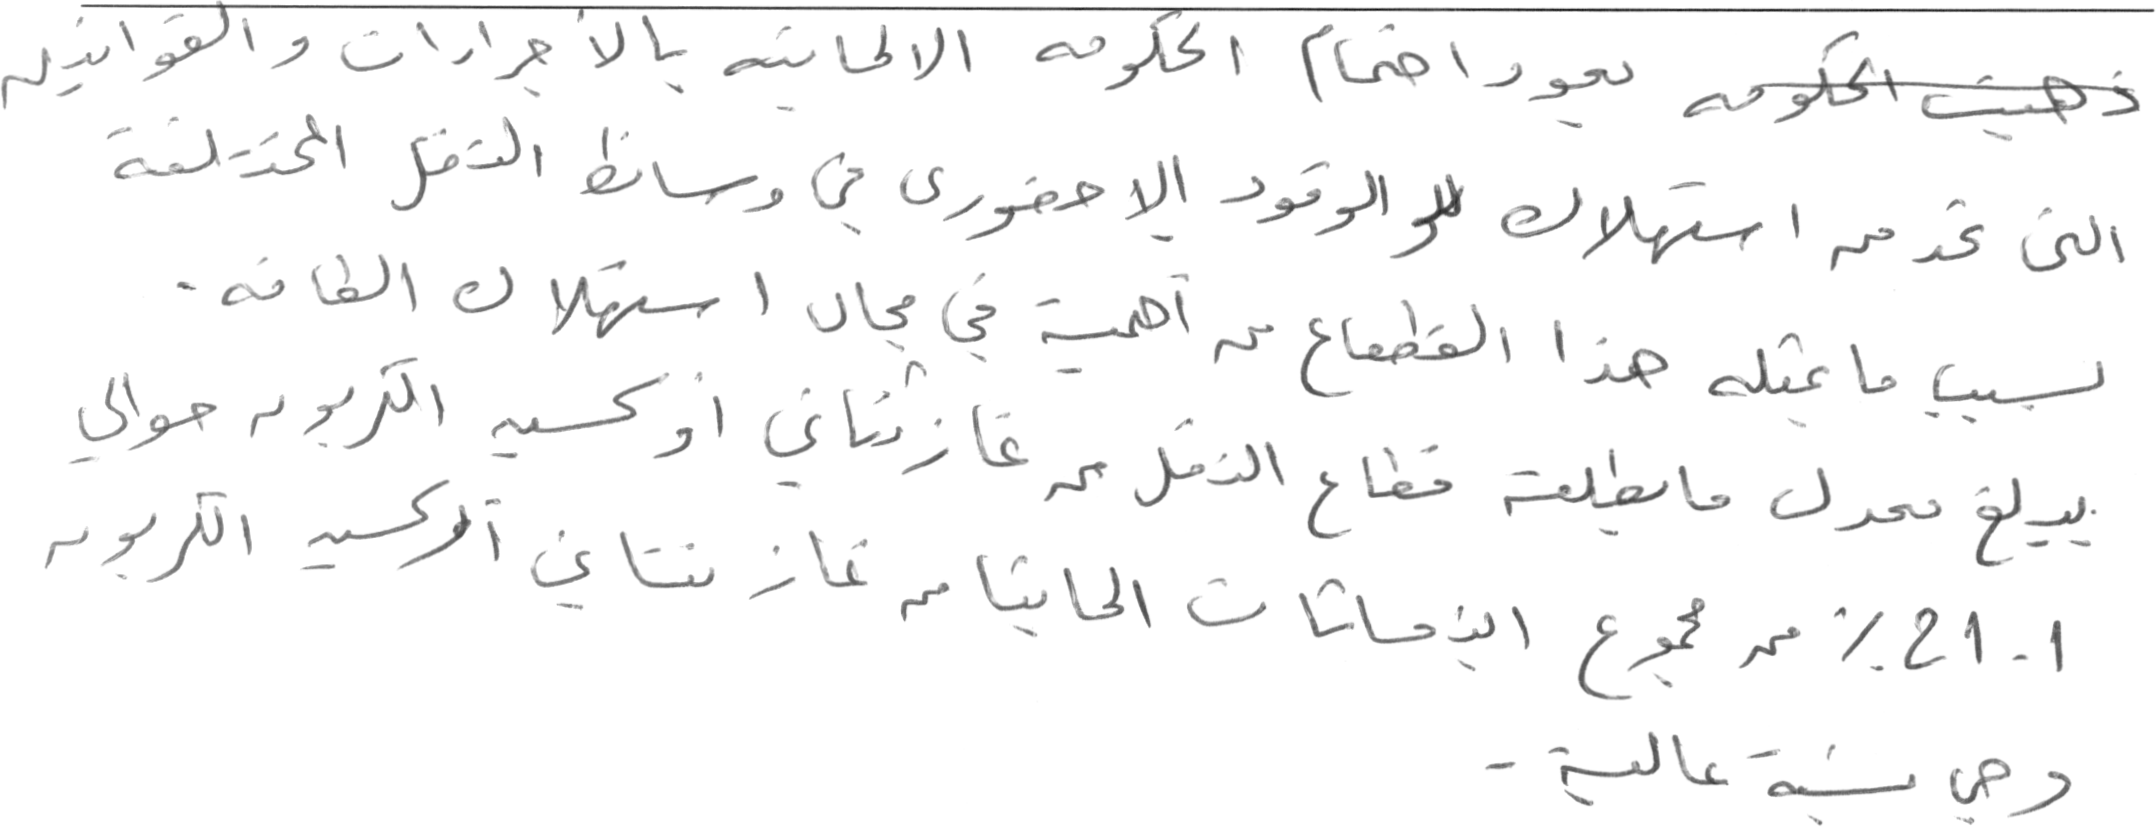 ذهبت الحكومه يعود اهتمام الحكومه الالمانيه بالأجراءات والقوانين
التى تحد من استهلاك الوقود الاحفورى في وسائط النقل المختلفة
بسبب ما يمثله هذا القطاع من أهمية في مجال استهلاك الطاقه .
يبلغ معدل ما يطلقة قطاع النقل من غاز ثنائي أوكسيد الكربون حوالي
21.1 % من مجموع انبعاثات المانيا من غاز ثنائي أوكسيد الكربون
وهي نسبة عالية .